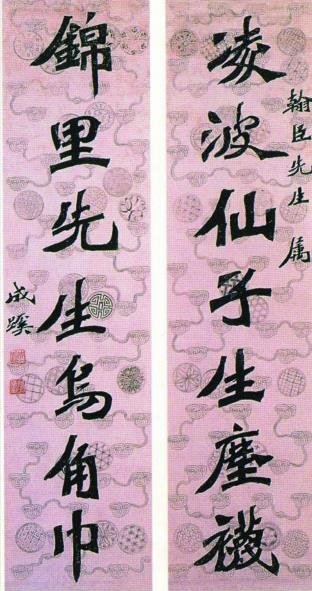 翰臣先生属
凌波仙子生塵襪
錦里先生烏角巾
成蹊